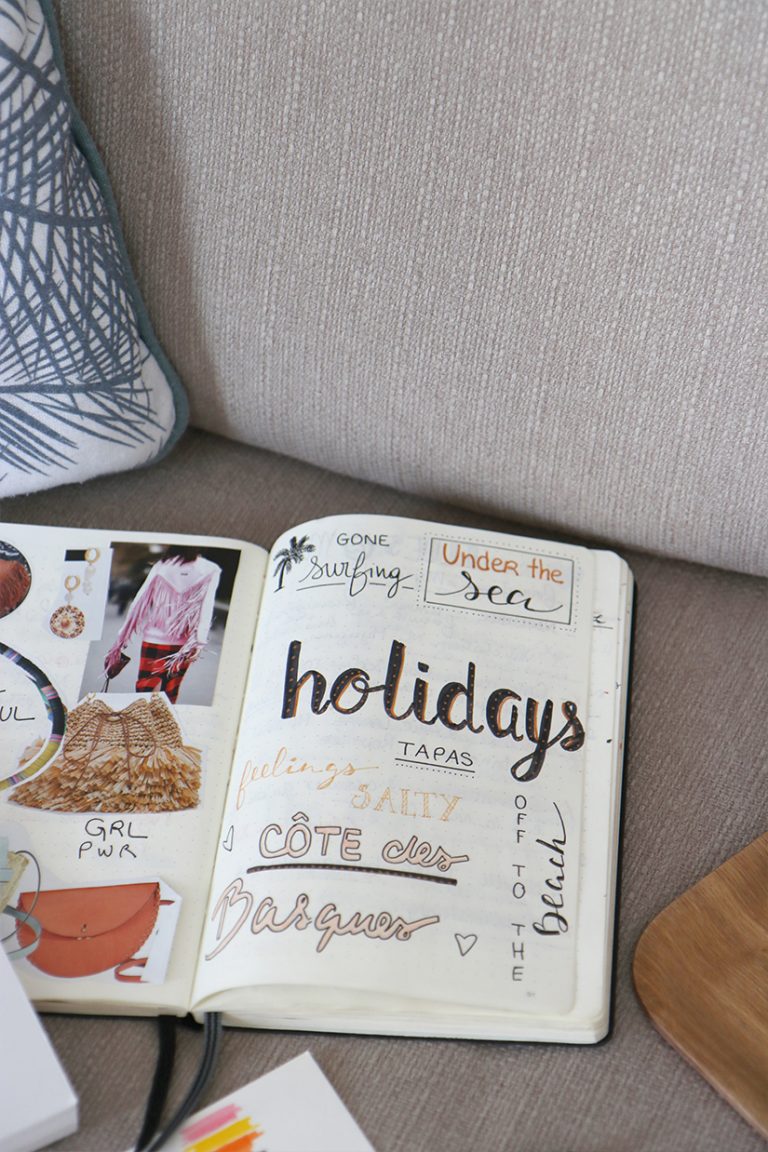 GRL
PWR
GONE
surfing
UNDER the
sea
holidays
TAPAS
feelings
SALTY
CÔTE des
Basques
OFF TO THE
Beach